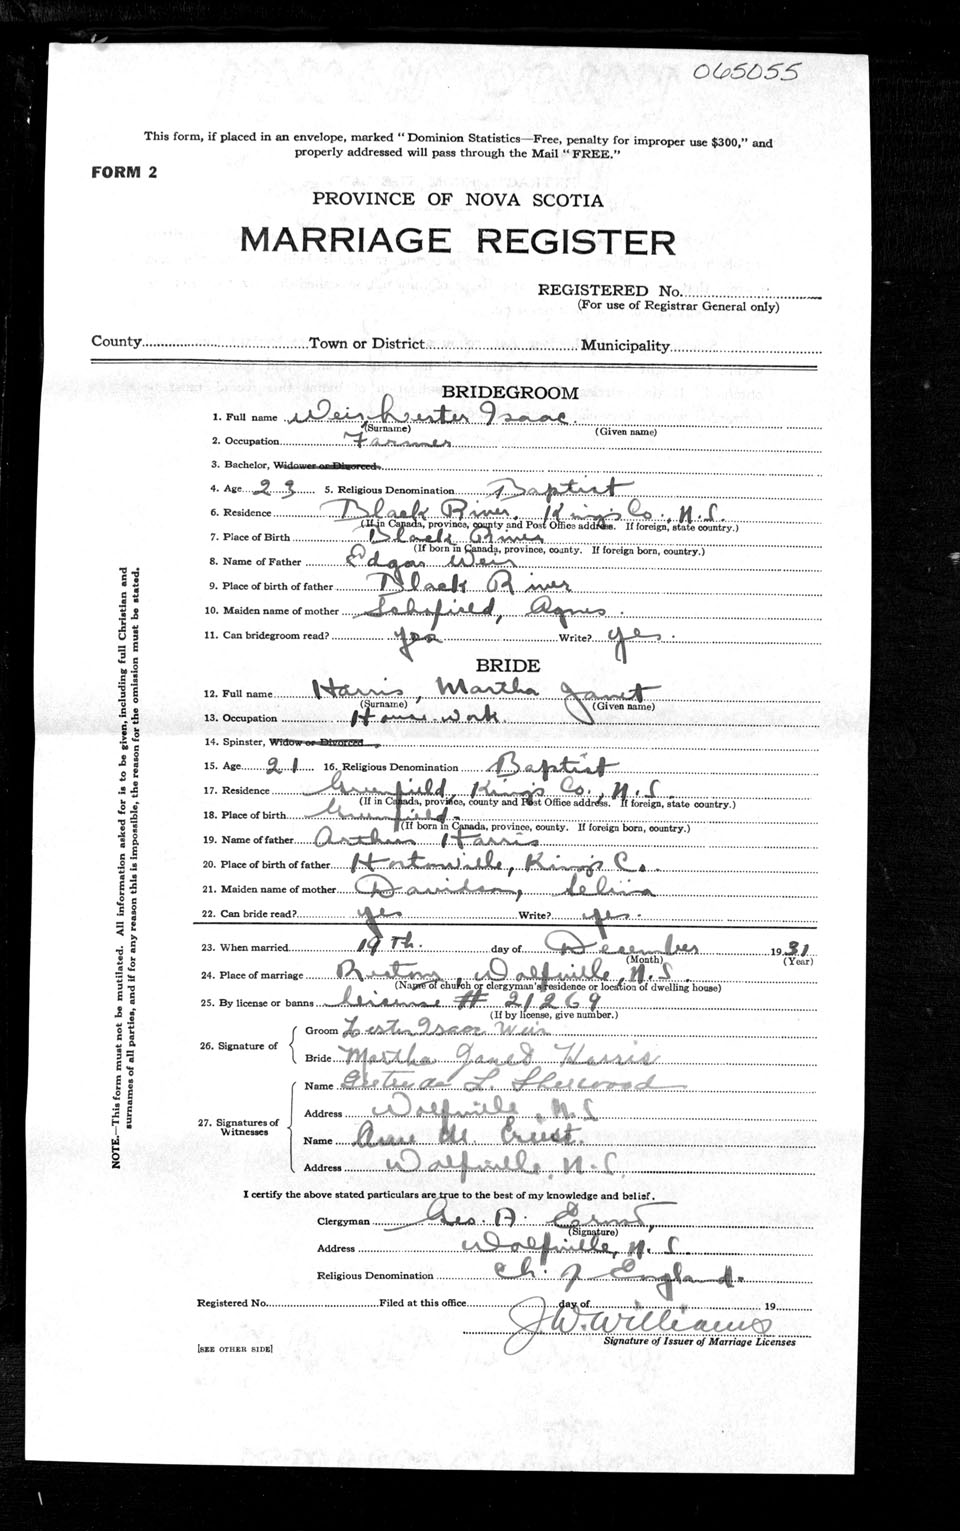 065055
This form, if placed in an envelope, marked "Dominion Statistics—Free, penalty for improper use $300," and
properly addressed will pass through the Mail "FREE."
FORM 2
PROVINCE OF NOVA SCOTIA
MARRIAGE REGISTER
REGISTERED No.
(For use of Registrar General only)
County Town or District Municipality
BRIDEGROOM
1. Full name Weir, Lester Isaac.
(Surname) (Given name)
2. Occupation Farmer
3. Bachelor, Widower or Divorced.
4. Age 23 5. Religious Denomination Baptist
6. Residence Black River, Kings Co., N.S.
(If in Canada, province, county and Post Office address. If foreign, state country.)
7. Place of Birth Black River
(If born in Canada, province, county. If foreign born, country.)
8. Name of Father Edgar Weir
9. Place of birth of father Black River
10. Maiden name of mother Schofield, Agnes.
11. Can bridegroom read? yes Write? yes.
BRIDE
12. Full name Harris, Martha Janet
(Surname) (Given name)
13. Occupation House work
14. Spinster, Widow or Divorced.
15. Age 21 16. Religious Denomination Baptist
17. Residence Greenfield, Kings Co., N.S.
(If in Canada, province, county and Post Office address. If foreign, state country.)
18. Place of birth Greenfield.
(If born in Canada, province, county. If foreign born, country.)
19. Name of father Arthur Harris
20. Place of birth of father Hortonville, Kings Co.
21. Maiden name of mother Davidson,
22. Can bride read? yes Write? yes.
23. When married 19th. day of December 1931
(Month) (Year)
24. Place of marriage Rectory, Wolfville, N.S.
(Name of church or clergyman's residence or location of dwelling house)
25. By license or banns License # 21269
(If by license, give number.)
26. Signature of
Groom Lester Isaac Weir
Bride Martha Janet Harris
27. Signatures of Witnesses
Name Gertrude L. Sherwood
Address Wolfville, N.S.
Name Annie M.
Address Wolfville, N.S.
I certify the above stated particulars are true to the best of my knowledge and belief.
Clergyman Geo. A.
(Signature)
Address Wolfville, N.S.
Religious Denomination Ch. of England.
Registered No. Filed at this office day of 19
J.W. Williams
Signature of Issuer of Marriage Licenses
[SEE OTHER SIDE]
NOTE.—This form must not be mutilated. All information asked for is to be given, including full Christian and
surnames of all parties, and if for any reason this is impossible, the reason for the omission must be stated.